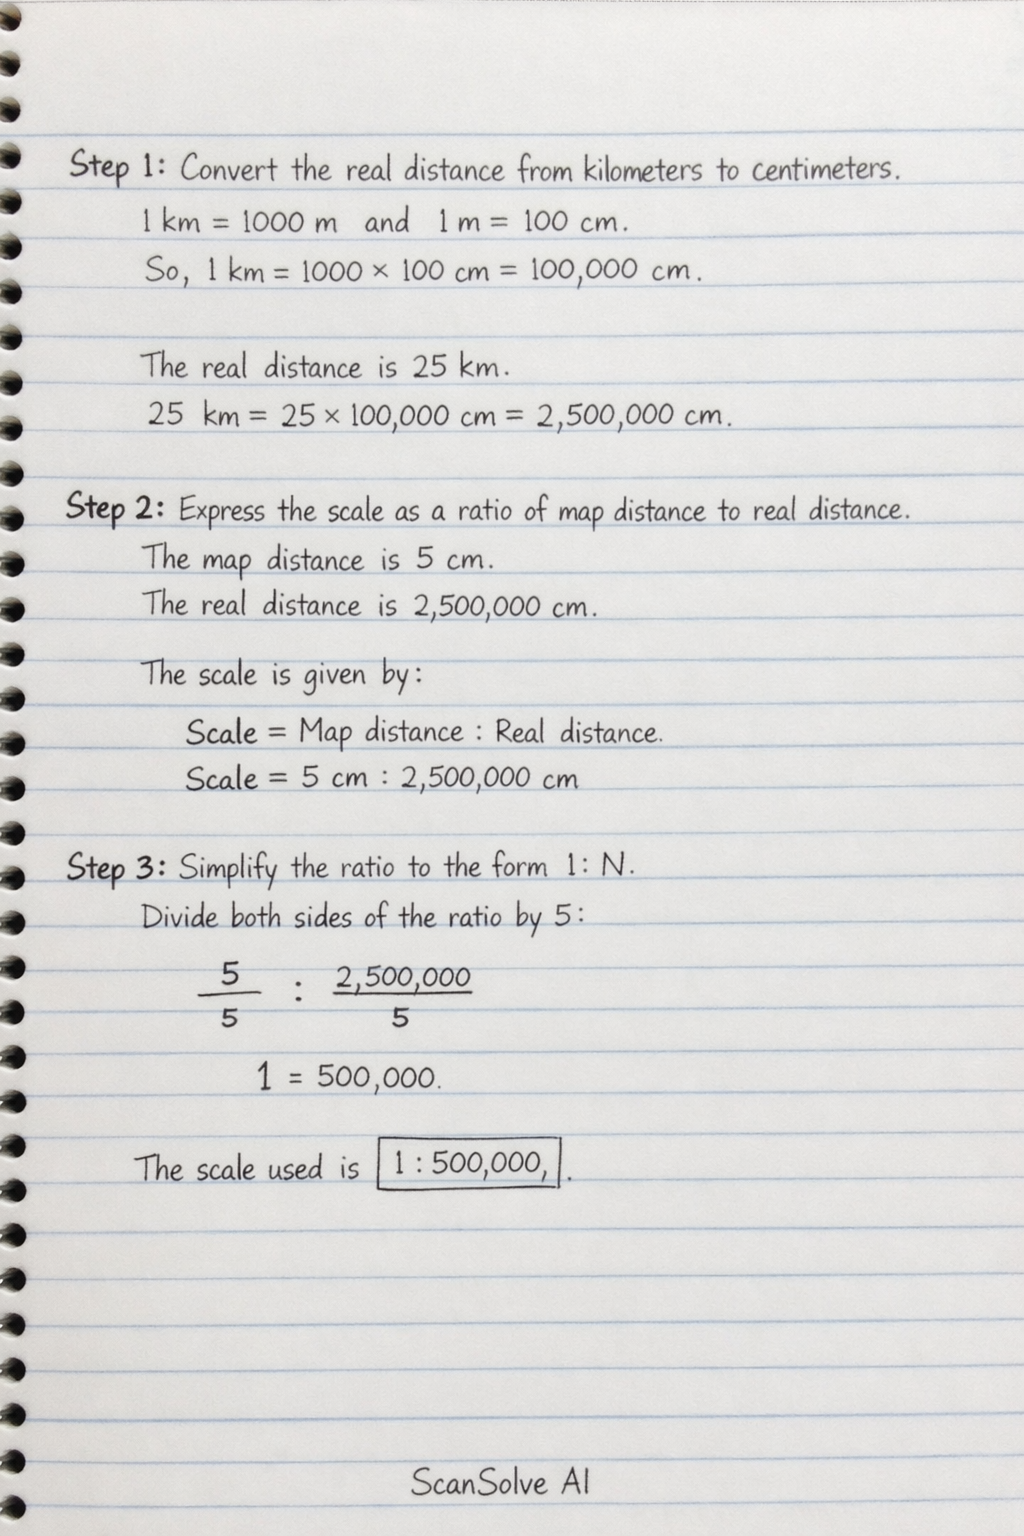 Step 1: Convert the real distance from kilometers to centimeters.
1 km = 1000 m and 1 m = 100 cm.
So, 1 km = 1000 × 100 cm = 100,000 cm.
The real distance is 25 km.
25 km = 25 × 100,000 cm = 2,500,000 cm.
Step 2: Express the scale as a ratio of map distance to real distance.
The map distance is 5 cm.
The real distance is 2,500,000 cm.
The scale is given by:
Scale = Map distance : Real distance.
Scale = 5 cm : 2,500,000 cm
Step 3: Simplify the ratio to the form 1: N.
Divide both sides of the ratio by 5:
5 : 2,500,000
5 5
1 = 500,000.
The scale used is 1 : 500,000, .
ScanSolve AI